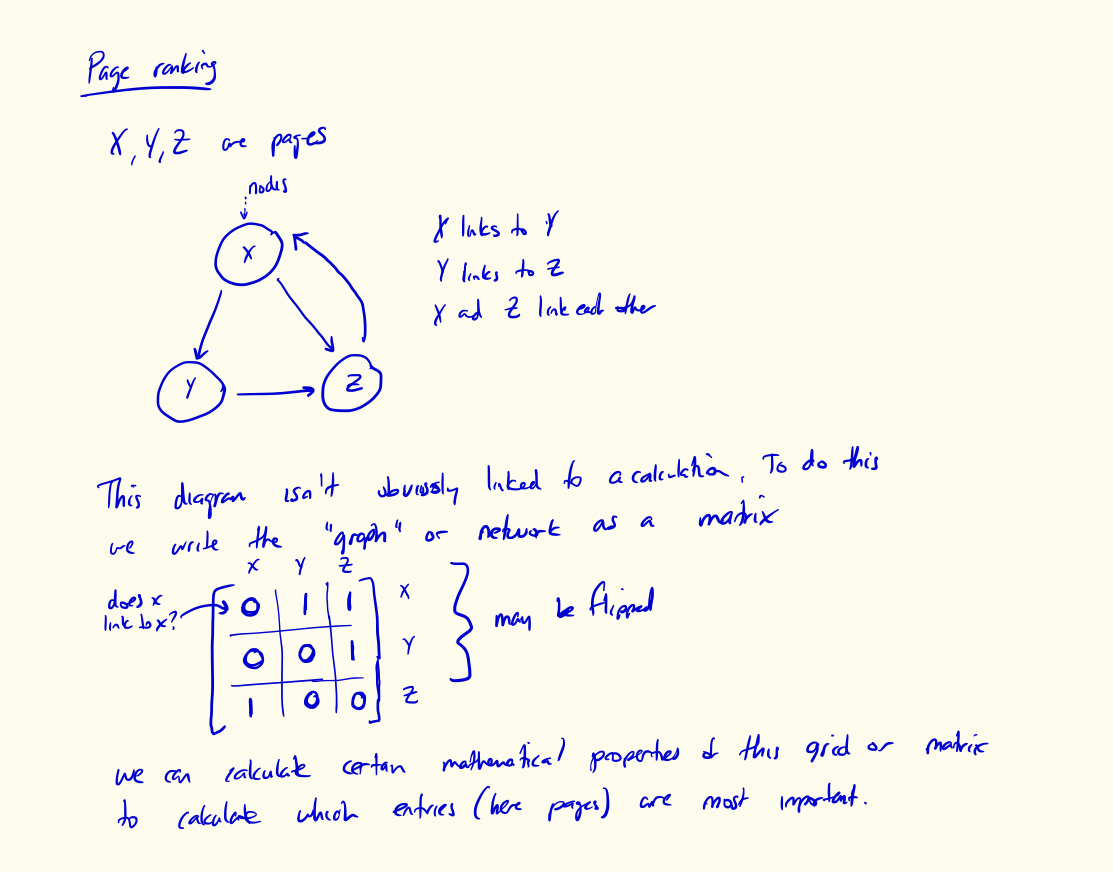 Page ranking
X, Y, Z are pages
nodes
X
Y
Z
X links to Y
Y links to Z
X ad Z link each other
This diagram isn't obviously linked to a calculation. To do this
we write the "graph" or network as a matrix
X Y Z
does x
link to x?
0 1 1 X
0 0 1 Y
1 0 0 Z
may be flipped
we can calculate certan mathematical properties of this grid or matrix
to calculate which entries (here pages) are most important.